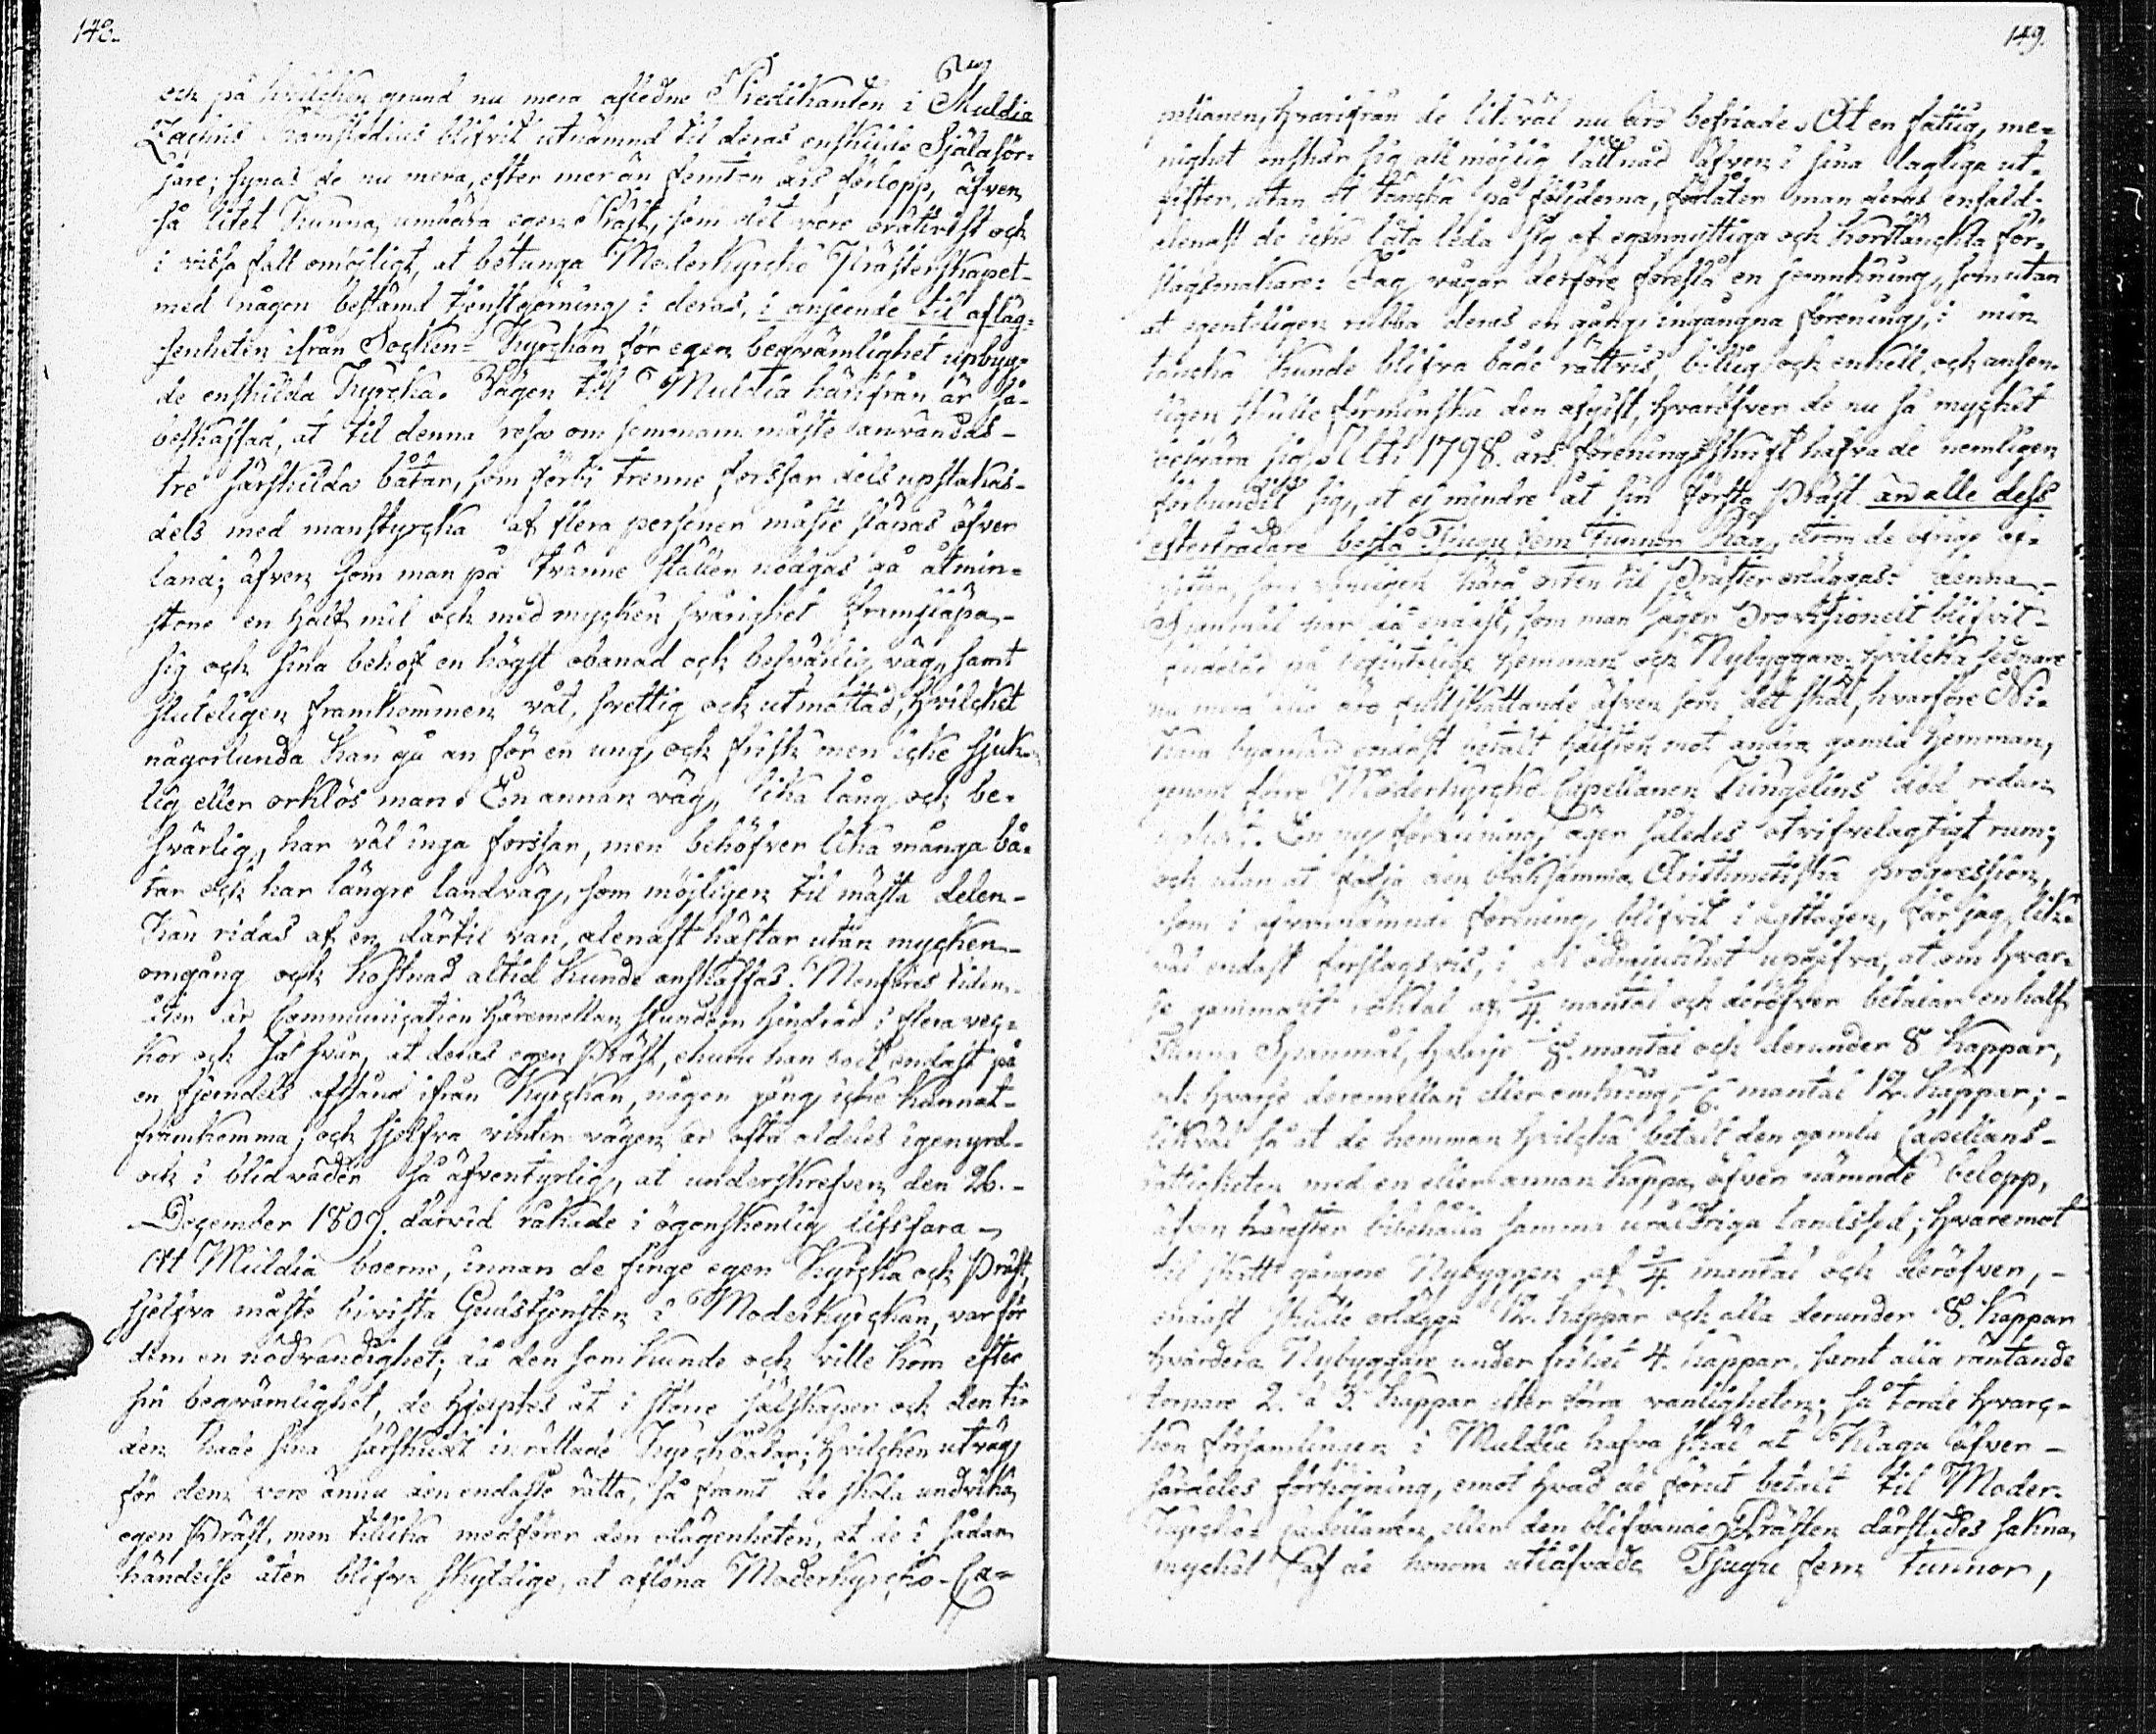 148.
och på hvilcken grund nu mera afledne Predikanten i Muldia
Zachris Cramstadius blifvit utnämnd til deras enskilde Själasör-
jare; synas de nu mera, efter mer än femton års förlopp, äfven
så litet kunna umbära egen Präst, som det vore orättvist och
i vissa fall omöjligt, at betunga Moderkyrcko Prästerskapet
med någon bestämd tienstgörning i deras, i anseende til afläg-
senheten ifrån Sochen-Kyrckan för egen beqvämlighet upbyg-
de enskilda Kyrcka. Vägen til Muldia härifrån är så
beskaffad, at til denna resa om sommarn måste användas
tre särskilda båtar, som förbi trenne forssar dels upstakas
dels med manstyrcka af flera personer måste slänas öfver
land; äfven som man på tvänne ställen nödgas gå åtmin-
stone en half mil och med mycken svårighet framsläpa
sig och sina behof en högst obanad och besvärlig väg, samt
sluteligen framkommen våt, svettig och utmattad, hvilcket
någorlunda kan gå an för en ung, och frisk men icke sjuk-
lig eller orklös man. En annan väg, lika lång och be-
svärlig, har väl inga forssar, men behöfver lika många bå-
tar och har längre landväg, som möjligen til mästa delen
kan ridas af en därtil van, alenast hästar utan mycken
omgång och kostnad altid kunde anskaffas. Menföres tiden
åter är Communication häremellan stundom hindrad i flera vec-
kor och så svår, at deras egen Präst, ehuru han bodt endast på
en fjerndels afstånd ifrån Kyrckan, någon gång icke kunnat
framkomma; och sjelfva vinter vägen är ofta aldeles igenyrd
och i blidväder så äfventyrlig, at underskrefven den 26.
December 1809. därvid råkade i ögonskenlig lifsfara
At Muldia boerne, innan de finge egen Kyrcka och Präst,
sjelfva måste bivista Gudstjensten i Moderkyrckan, var för
dem en nödvändighet; då den som kunde och ville kom efter
sin beqvämlighet, de hjelptes åt i större sälskaper och den ti-
den hade sina särskildt inrättade Kyrckbåtar; hvilcken utväg
för dem vore ännu den endaste rätta, så framt de skola undvika
egen Präst, men tillika medförer den olägenheten, at de i sådan
händelse åter blifva skyldige, at aflöna Moderkyrcko-Ca-
149.
pellanen, hvarifrån de likväl nu äro befriade. At en fattig, me-
nighet önskar sig all möjlig lättnad äfven i sina lagliga ut-
gifter, utan at täncka på följderna, förlåter man deras enfald
alenast de icke låta leda sig af egennyttiga och korttänckta för-
slagsmakare: Jag vågar derföre föreslå en jemnkning, som utan
at egenteligen rubba deras en gång ingångna förening, i min
tancka kunde blifva både rättvis, billig och enkell, och ansen-
ligen skulle förminska den afgift, hvaröfver de nu så mycket
besvära sig. Uti 1798. års föreningsskrift hafva de nemligen
förbundit sig, at ej mindre åt sin första Präst än alle dess
efterträdare bestå Tjugu fem Tunnor Råg, utom de öfrige af-
gifter, som vanligen i orten til Präster erläggas: denna
Spanmål har då endast, som man säger Provisionelt blifvit
fördelad på befinteliga Hemman och Nybyggare, hvilcka sednare
nu mera äro fullskattande äfven som det skäl, hvarföre Ni-
kara byamän endast betalt hälften mot andra gamla Hemman,
genom förre Moderkyrcko Capellanen Jungelins död redan
. En ny förening äger således otvifvelagtigt rum;
och utan at följa den Arithmetiska Progression,
som i ofvannämnde förening blifvit i agttagen, får jag, lik-
väl endast förslagsvis, i all ödmjukhet upgifva, at om hvar-
je gammalt af ¾ mantal och deröfver betalar en half
Tunna Spanmål, hvarje ⅜ mantal och derunder 8 kappar,
och hvarje deremellan eller omkring mantal 12. kappar;
likväl så at de hemman hvilcka betalt den gamla Capellans-
rättigheten med en eller annan kappa öfver nämnde belopp,
äfven härefter bibehålla samma uråldriga landssed; hvaremot
til skatt gångne Nybyggen af ¾ mantal och deröfver,
endast skulle erlägga 12. kappar och alla derunder 8. kappar
hvardera Nybyggare under frihet 4. kappar, samt alla räntande
torpare 2. à 3. kappar efter förra vanligheten; så torde hvarc-
ken församlingen i Muldia hafva skäl at klaga öfver
särdeles förhöjning, emot hvad de förut betalt til Moder-
Kyrcko- Capellanen, eller den blifvande Prästen därstädes sakna
mycket af de honom utlåfvade Tjugu fem tunnor,